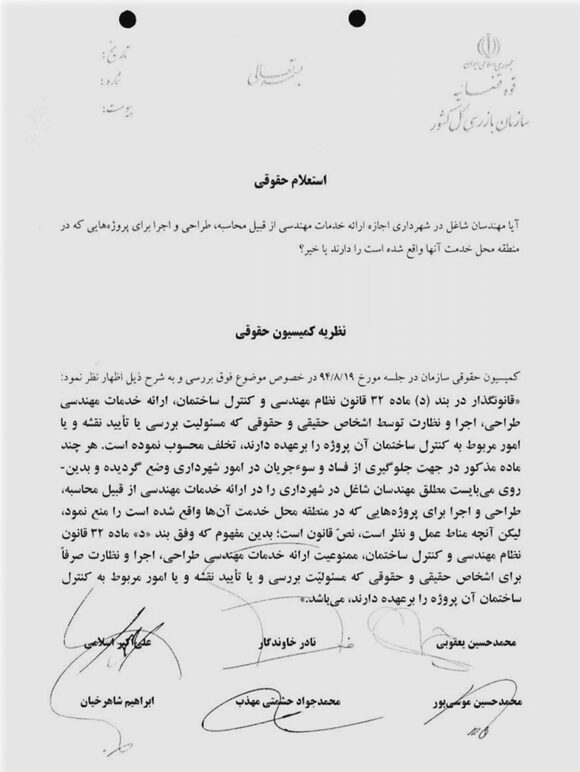 جمهوری اسلامی ایران
قوه قضائیه
سازمان بازرسی کل کشور
بسمه تعالی
تاریخ:
شماره:
پیوست:
استعلام حقوقی
آیا مهندسان شاغل در شهرداری اجازه ارائه خدمات مهندسی از قبیل محاسبه، طراحی و اجرا برای پروژه‌هایی که در
منطقه محل خدمت آنها واقع شده است را دارند یا خیر؟
نظریه کمیسیون حقوقی
کمیسیون حقوقی سازمان در جلسه مورخ ۹۴/۸/۱۹ در خصوص موضوع فوق بررسی و به شرح ذیل اظهار نظر نمود:
«قانونگذار در بند (د) ماده ۳۲ قانون نظام مهندسی و کنترل ساختمان، ارائه خدمات مهندسی
طراحی، اجرا و نظارت توسط اشخاص حقیقی و حقوقی که مسئولیت بررسی یا تأیید نقشه و یا
امور مربوط به کنترل ساختمان آن پروژه را برعهده دارند، تخلف محسوب نموده است. هر چند
ماده مذکور در جهت جلوگیری از فساد و سوءجریان در امور شهرداری وضع گردیده و بدین-
روی می‌بایست مطلق مهندسان شاغل در شهرداری را در ارائه خدمات مهندسی از قبیل محاسبه،
طراحی و اجرا برای پروژه‌هایی که در منطقه محل خدمت آن‌ها واقع شده است را منع نمود،
لیکن آنچه مناط عمل و نظر است، نصّ قانون است؛ بدین مفهوم که وفق بند «د» ماده ۳۲ قانون
نظام مهندسی و کنترل ساختمان، ممنوعیت ارائه خدمات مهندسی طراحی، اجرا و نظارت صرفاً
برای اشخاص حقیقی و حقوقی که مسئولیّت بررسی و یا تأیید نقشه و یا امور مربوط به کنترل
ساختمان آن پروژه را برعهده دارند، می‌باشد.»
محمدحسین یعقوبی نادر خاوندگار علی‌اکبر اسلامی
محمدحسین موسی‌پور محمدجواد حشمتی مهذب ابراهیم شاهرخیان